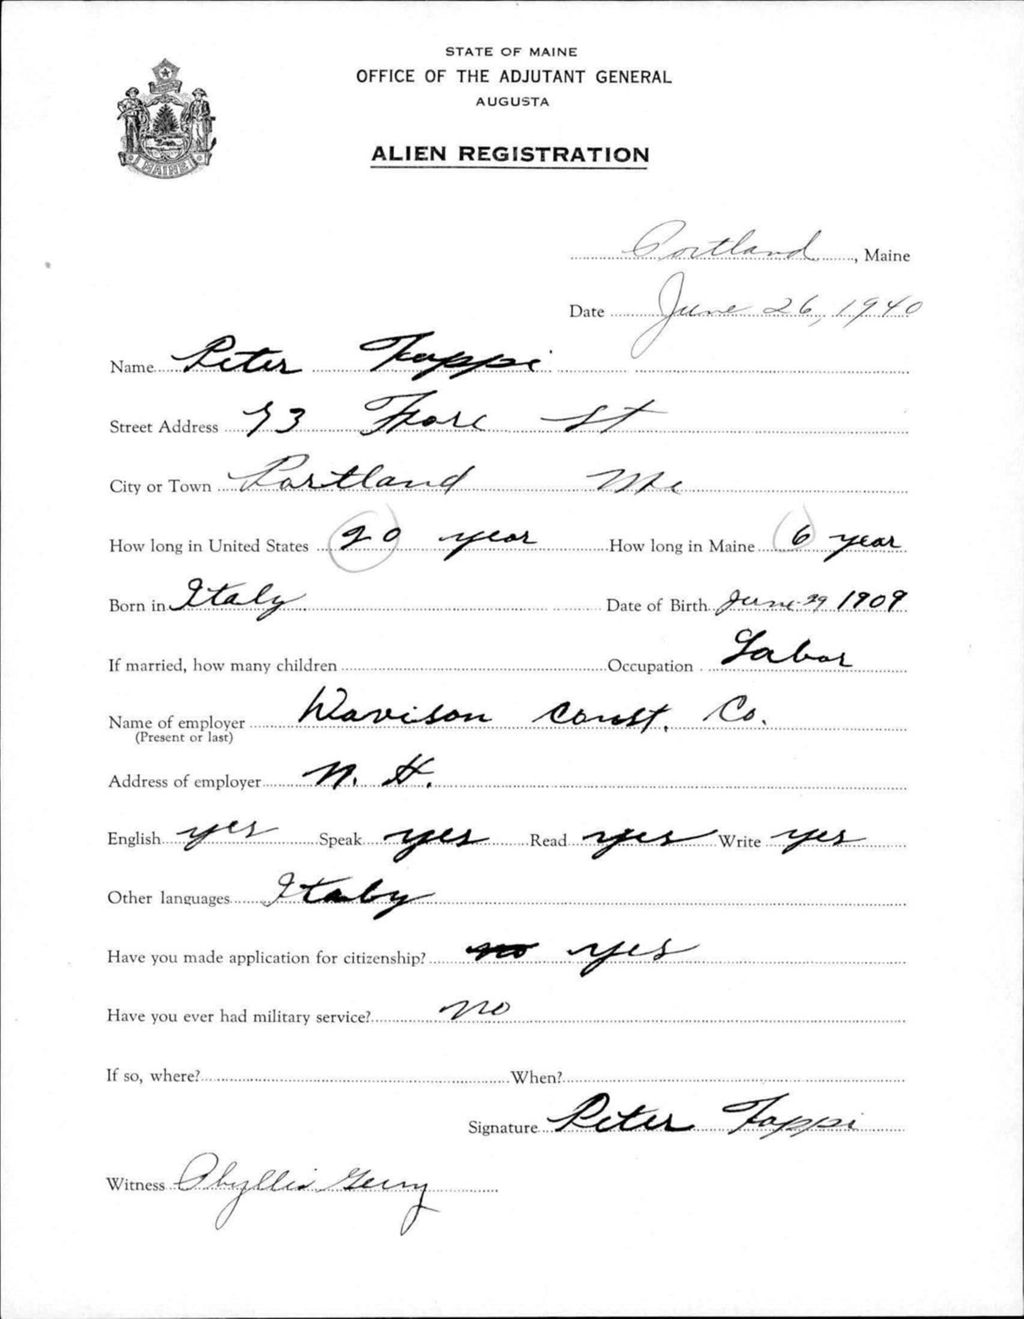 STATE OF MAINE
OFFICE OF THE ADJUTANT GENERAL
AUGUSTA
MAINE
ALIEN REGISTRATION
Portland, Maine
Date June 26, 1940
Name Peter Foppi
Street Address 93 Fore St
City or Town Portland Me
How long in United States 20 year How long in Maine 6 year
Born in Italy Date of Birth June 29 1909
If married, how many children Occupation Labor
Name of employer Davison Const. Co.
(Present or last)
Address of employer N. H.
English yes Speak yes Read yes Write yes
Other languages Italy
Have you made application for citizenship? no yes
Have you ever had military service? no
If so, where? When?
Signature Peter Foppi
Witness Phyllis Gerry